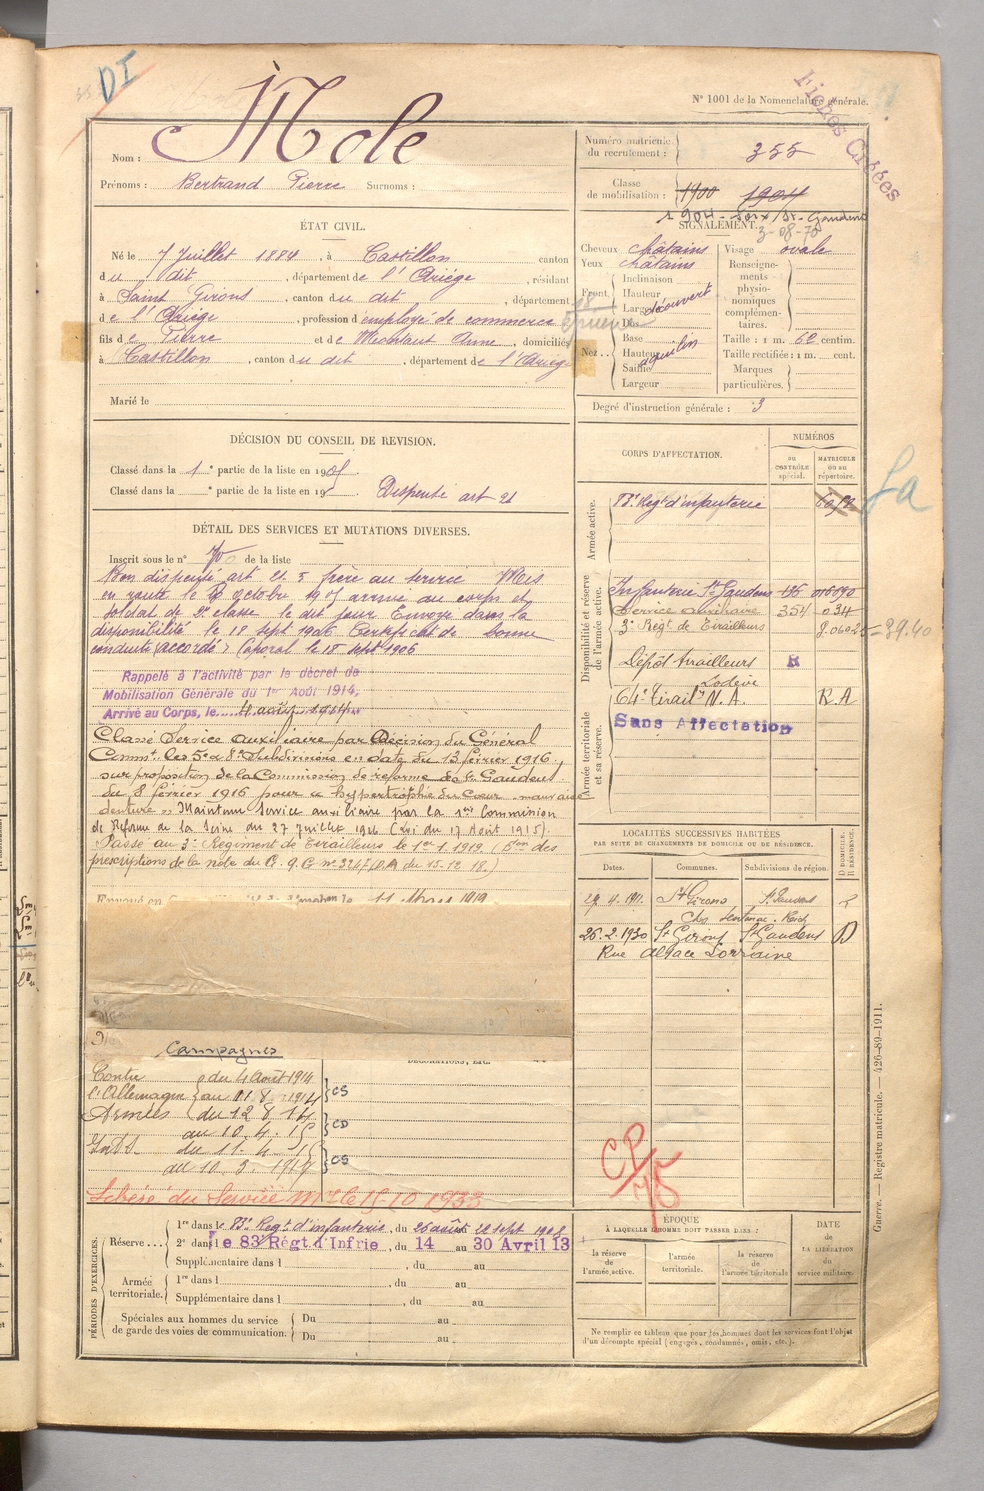 DI
N° 1001 de la Nomenclature générale.
Fiches Créées
Nom : Mole
Prénoms : Bertrand Pierre Surnoms :
Numéro matricule du recrutement : 355
Classe de mobilisation : 1900 1904
1904 - St-Gaudens
3-08-70
ÉTAT CIVIL.
Né le 7 Juillet 1884, à Castillon canton
du dit, département de l'Ariége, résidant
à Saint Girons, canton du dit, département
de l'Ariége, profession d'employé de commerce
fils de Pierre et de Anne, domiciliés
à Castillon, canton du dit, département de l'Ariége
Marié le
SIGNALEMENT.
Cheveux châtains
Yeux châtains
Front. Inclinaison
Hauteur
Largeur
découvert
Nez. Dos
Base
Hauteur
Saillie
Largeur
aquilin
Visage ovale
Renseignements physionomiques complémentaires.
Taille : 1 m. 62 centim.
Taille rectifiée : 1 m. cent.
Marques particulières.
Degré d'instruction générale : 3
DÉCISION DU CONSEIL DE REVISION.
Classé dans la 1e partie de la liste en 1905
Classé dans la e partie de la liste en 190 Dispensé art 21
DÉTAIL DES SERVICES ET MUTATIONS DIVERSES.
Inscrit sous le n° de la liste
Bon dispensé art 21. 3 frère au service Mis
en route le octobre 1905 arrivé au corps et
soldat de 2e classe le dit jour Envoyé dans la
disponibilité le 18 sept 1906 Certificat de bonne
conduite accordé Caporal le 18 sept 1906
Rappelé à l'activité par le décret de
Mobilisation Générale du 1er Août 1914,
Arrivé au Corps, le 4 août 1914
Classé Service auxiliaire par Décision du Général
Commt. les 5e & 8e Subdivisions en date du 13 février 1916,
sur proposition de la Commission de réforme de St Gaudens
du 8 février 1916 pour " hypertrophie du cœur - mauvaise
denture " Maintenu Service auxiliaire par la 1ère Commission
de Réforme de la Seine du 27 juillet 1916 (Loi du 17 Août 1915).
Passé au 3e Régiment de Tirailleurs le 1er 1 1919 (
prescriptions de la note du G.Q.G. du 15.12.18.)
11 Mars 1919
Campagnes
DÉCORATIONS, ETC.
Contre l'Allemagne
du 4 Août 1914
au 11 8 1914 CS
Armées du 12 8 14
au 10. 4. 15 CD
Intr. du 11. 4 15
au 10. 3. 1919 CS
Libéré du Service le 15-10 1933
CORPS D'AFFECTATION.
NUMÉROS
DU CONTRÔLE spécial.
MATRICULE OU AU répertoire.
Armée active.
83e Regt d'infanterie
Disponibilité et réserve de l'armée active.
Infanterie St Gaudens 196
Service auxiliaire 354 034
3e Regt de Tirailleurs
Dépôt tirailleurs R
Lodève
64e Tiraillrs N.A. R.A
Armée territoriale et sa réserve.
Sans Affectation
LOCALITÉS SUCCESSIVES HABITÉES
PAR SUITE DE CHANGEMENTS DE DOMICILE OU DE RÉSIDENCE.
Dates. Communes. Subdivisions de région. D DOMICILE. R RÉSIDENCE.
29. 4. 1911. St Girons St Gaudens R
26. 2. 1930 St Girons St Gaudens D
Rue Alsace Lorraine
CP/75
PÉRIODES D'EXERCICES.
Réserve... 1re dans le 83e Regt d'infanterie, du 26 août au 22 sept 1908
2e dans le 83 Régt d'Infrie, du 14 au 30 Avril 13
Supplémentaire dans l , du au
Armée territoriale. 1re dans l , du au
Supplémentaire dans l , du au
Spéciales aux hommes du service de garde des voies de communication. Du au
Du au
ÉPOQUE
À LAQUELLE L'HOMME DOIT PASSER DANS :
la réserve de l'armée active.
l'armée territoriale.
la réserve de l'armée territoriale
DATE de LA LIBÉRATION du service militaire.
Ne remplir ce tableau que pour les hommes dont les services font l'objet
d'un décompte spécial (engagés, condamnés, omis, etc.).
Guerre. — Registre matricule. — 426-89-1911.